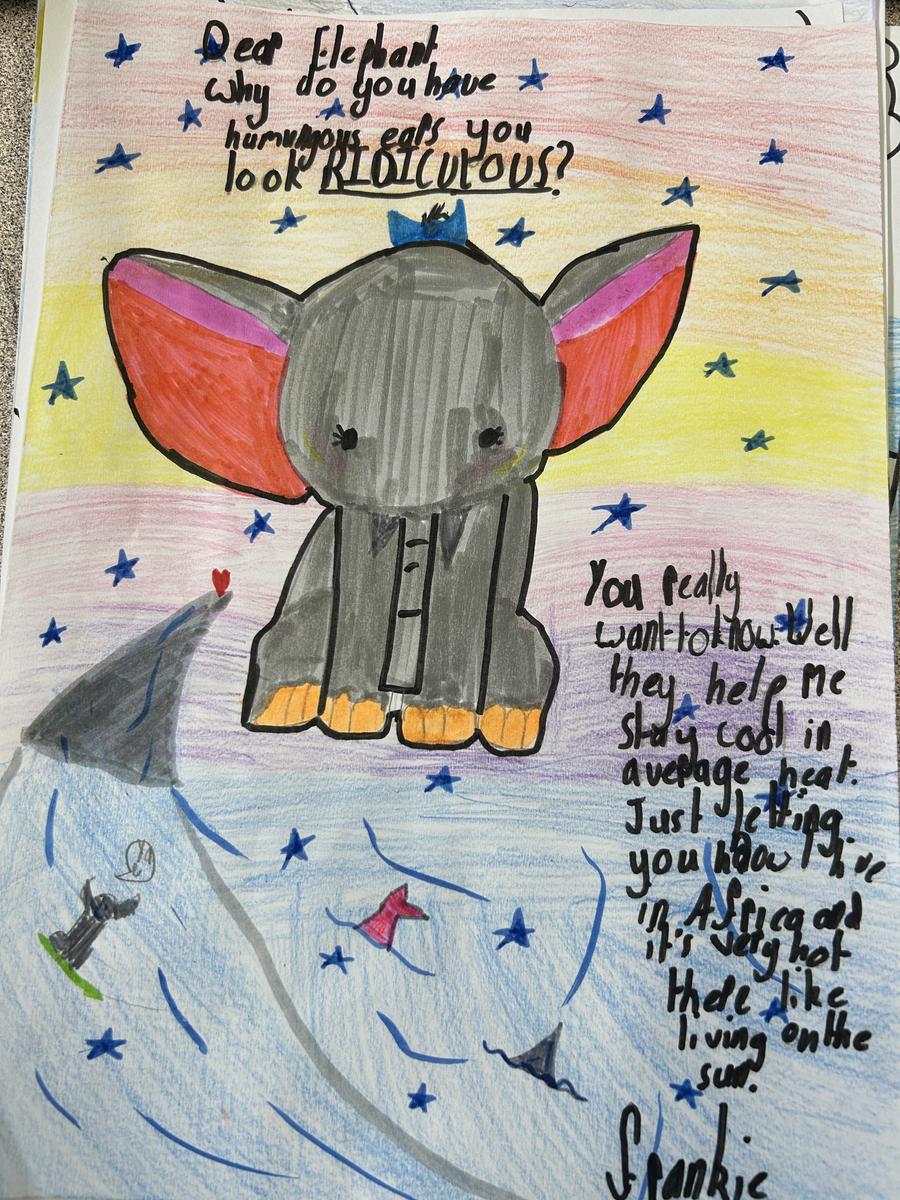 Dear Elephant
why do you have
humungous ears you
look RIDICULOUS?
You really
want to know. Well
they help Me
stay cool in
average heat.
Just letting
you know I live
in Africa and
it's very hot
there like
living on the
sun.
Frankie